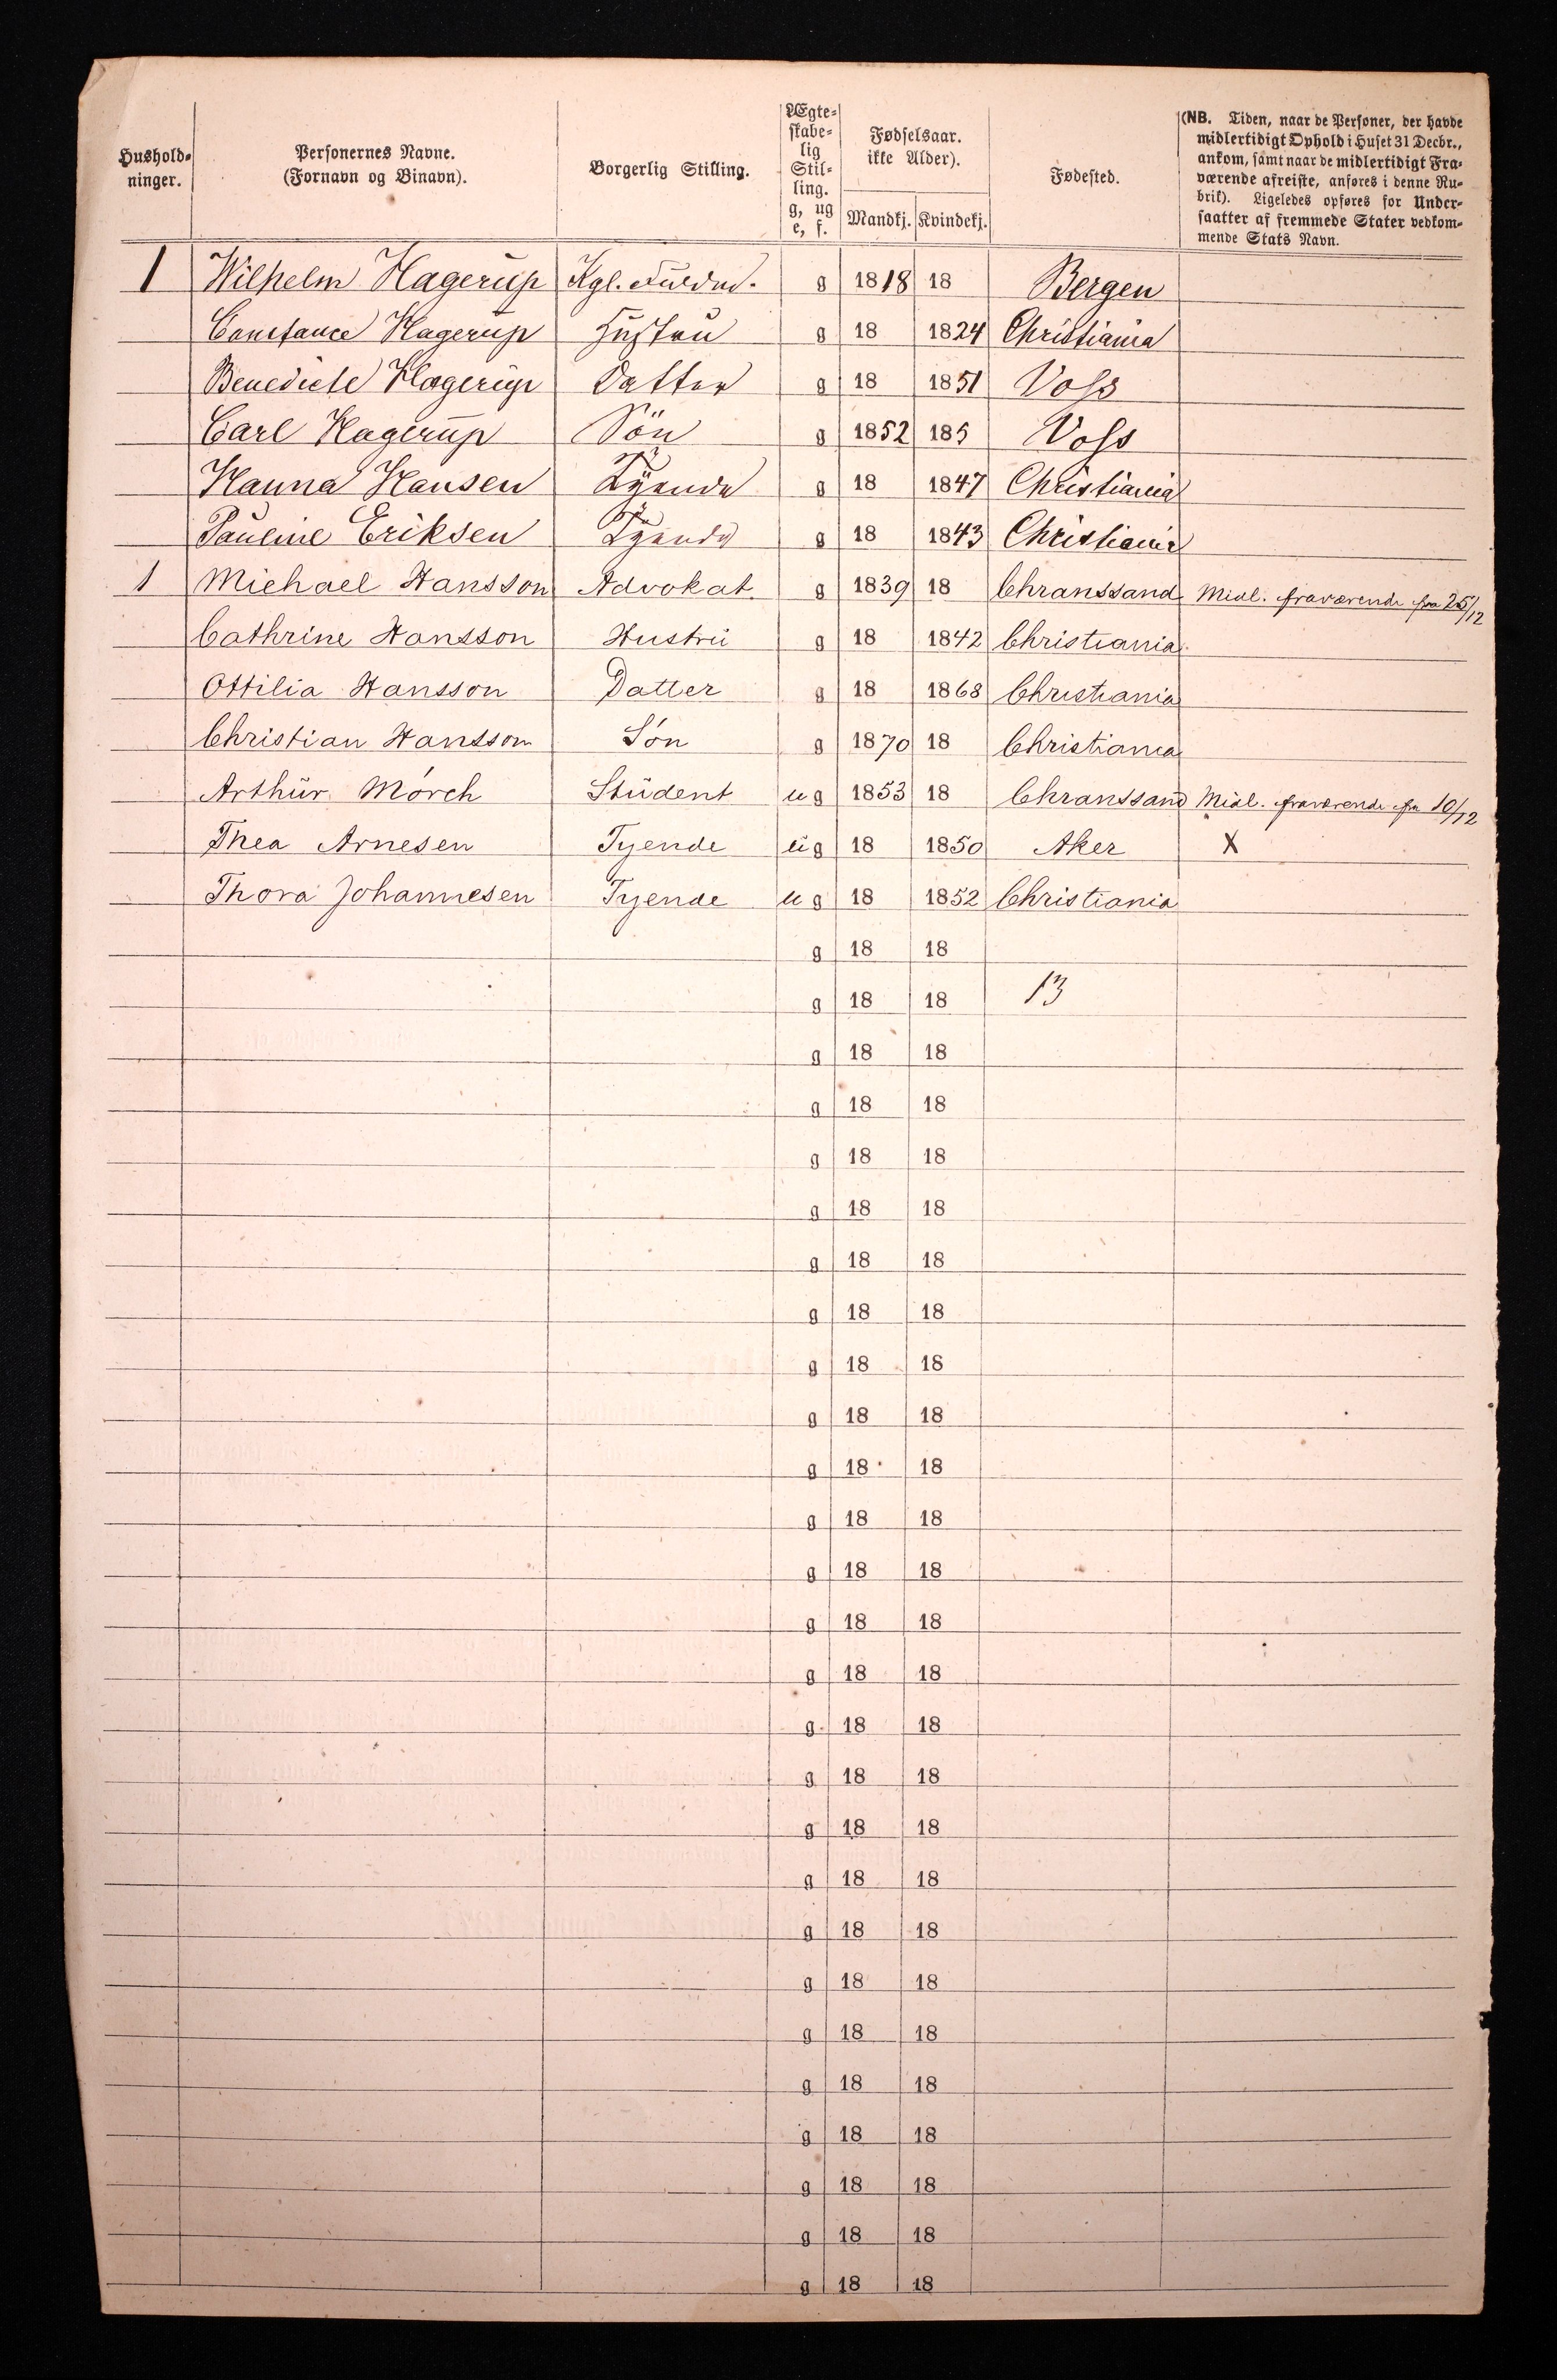 Hushold-
ninger.
Personernes Navne.
(Fornavn og Binavn).
Borgerlig Stilling.
Ægte-
skabe-
lig
Stil-
ling.
g, ug
e, f.
Fødselsaar.
ikke Alder).
Mandkj. Kvindekj.
Fødested.
(NB. Tiden, naar de Personer, der havde
midlertidigt Ophold i Huset 31 Decbr.,
ankom, samt naar de midlertidigt Fra-
værende afreiste, anføres i denne Ru-
brik). Ligeledes opføres for Under-
saatter af fremmede Stater vedkom-
mende Stats Navn.
1 Wilhelm Hagerup Kgl. g 1818 18 Bergen
Constance Hagerup Hustru g 18 1824 Christiania
Benedicte Hagerup Datter g 18 1851 Voss
Carl Hagerup Sön g 1852 185 Voss
Hanna Hansen Tyende g 18 1847 Christiania
Pauline Eriksen Tyende g 18 1843 Christiania
1 Michael Hansson Advokat. g 1839 18 Chranssand Midl. fraværende fra 25/12
Cathrine Hansson Hustru g 18 1842 Christiania
Ottilia Hansson Datter g 18 1868 Christiania
Christian Hansson Sön g 1870 18 Christiania
Arthur Mörch Student ug 1853 18 Chranssand Midl. fraværende fra 10/12
Thea Arnesen Tyende ug 18 1850 Aker X
Thora Johannesen Tyende ug 18 1852 Christiania
g 18 18
g 18 18 13
g 18 18
g 18 18
g 18 18
g 18 18
g 18 18
g 18 18
g 18 18
g 18 18
g 18 18
g 18 18
g 18 18
g 18 18
g 18 18
g 18 18
g 18 18
g 18 18
g 18 18
g 18 18
g 18 18
g 18 18
g 18 18
g 18 18
g 18 18
g 18 18
g 18 18